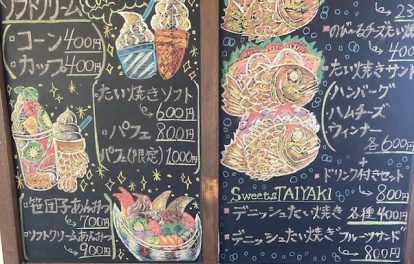 ソフトクリーム
コーン 400円
カップ 400円
たい焼きソフト
600円
パフェ 800円
パフェ(限定) 1000円
笹団子あんみつ
700円
ソフトクリームあんみつ
900円
400円
たい焼きサンド
ハンバーグ
ハムチーズ
ウィンナー
各600円
+
ドリンク付きセット
800円
Sweets TAIYAKI
デニッシュたい焼き
各種400円
デニッシュたい焼き"フルーツサンド"
800円